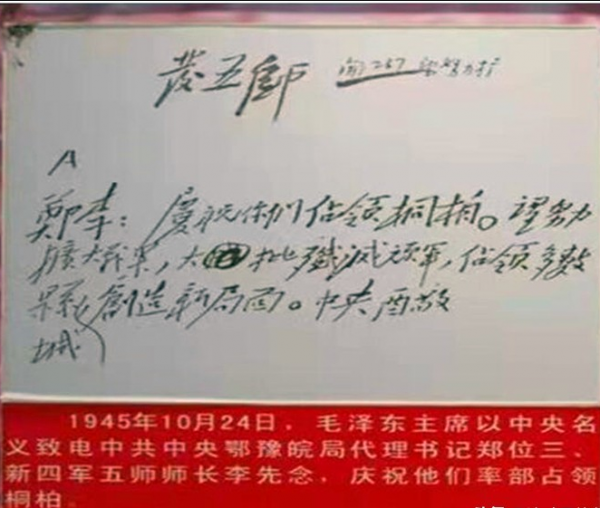 发五师
A
鄭李：慶祝你们佔领桐柏。望努力
擴大戰果，大批殲滅頑軍，佔领多数
县城，創造新局面。中央酉敬
1945年10月24日，毛泽东主席以中央名
义致电中共中央鄂豫皖局代理书记郑位三、
新四军五师师长李先念，庆祝他们率部占领
桐柏